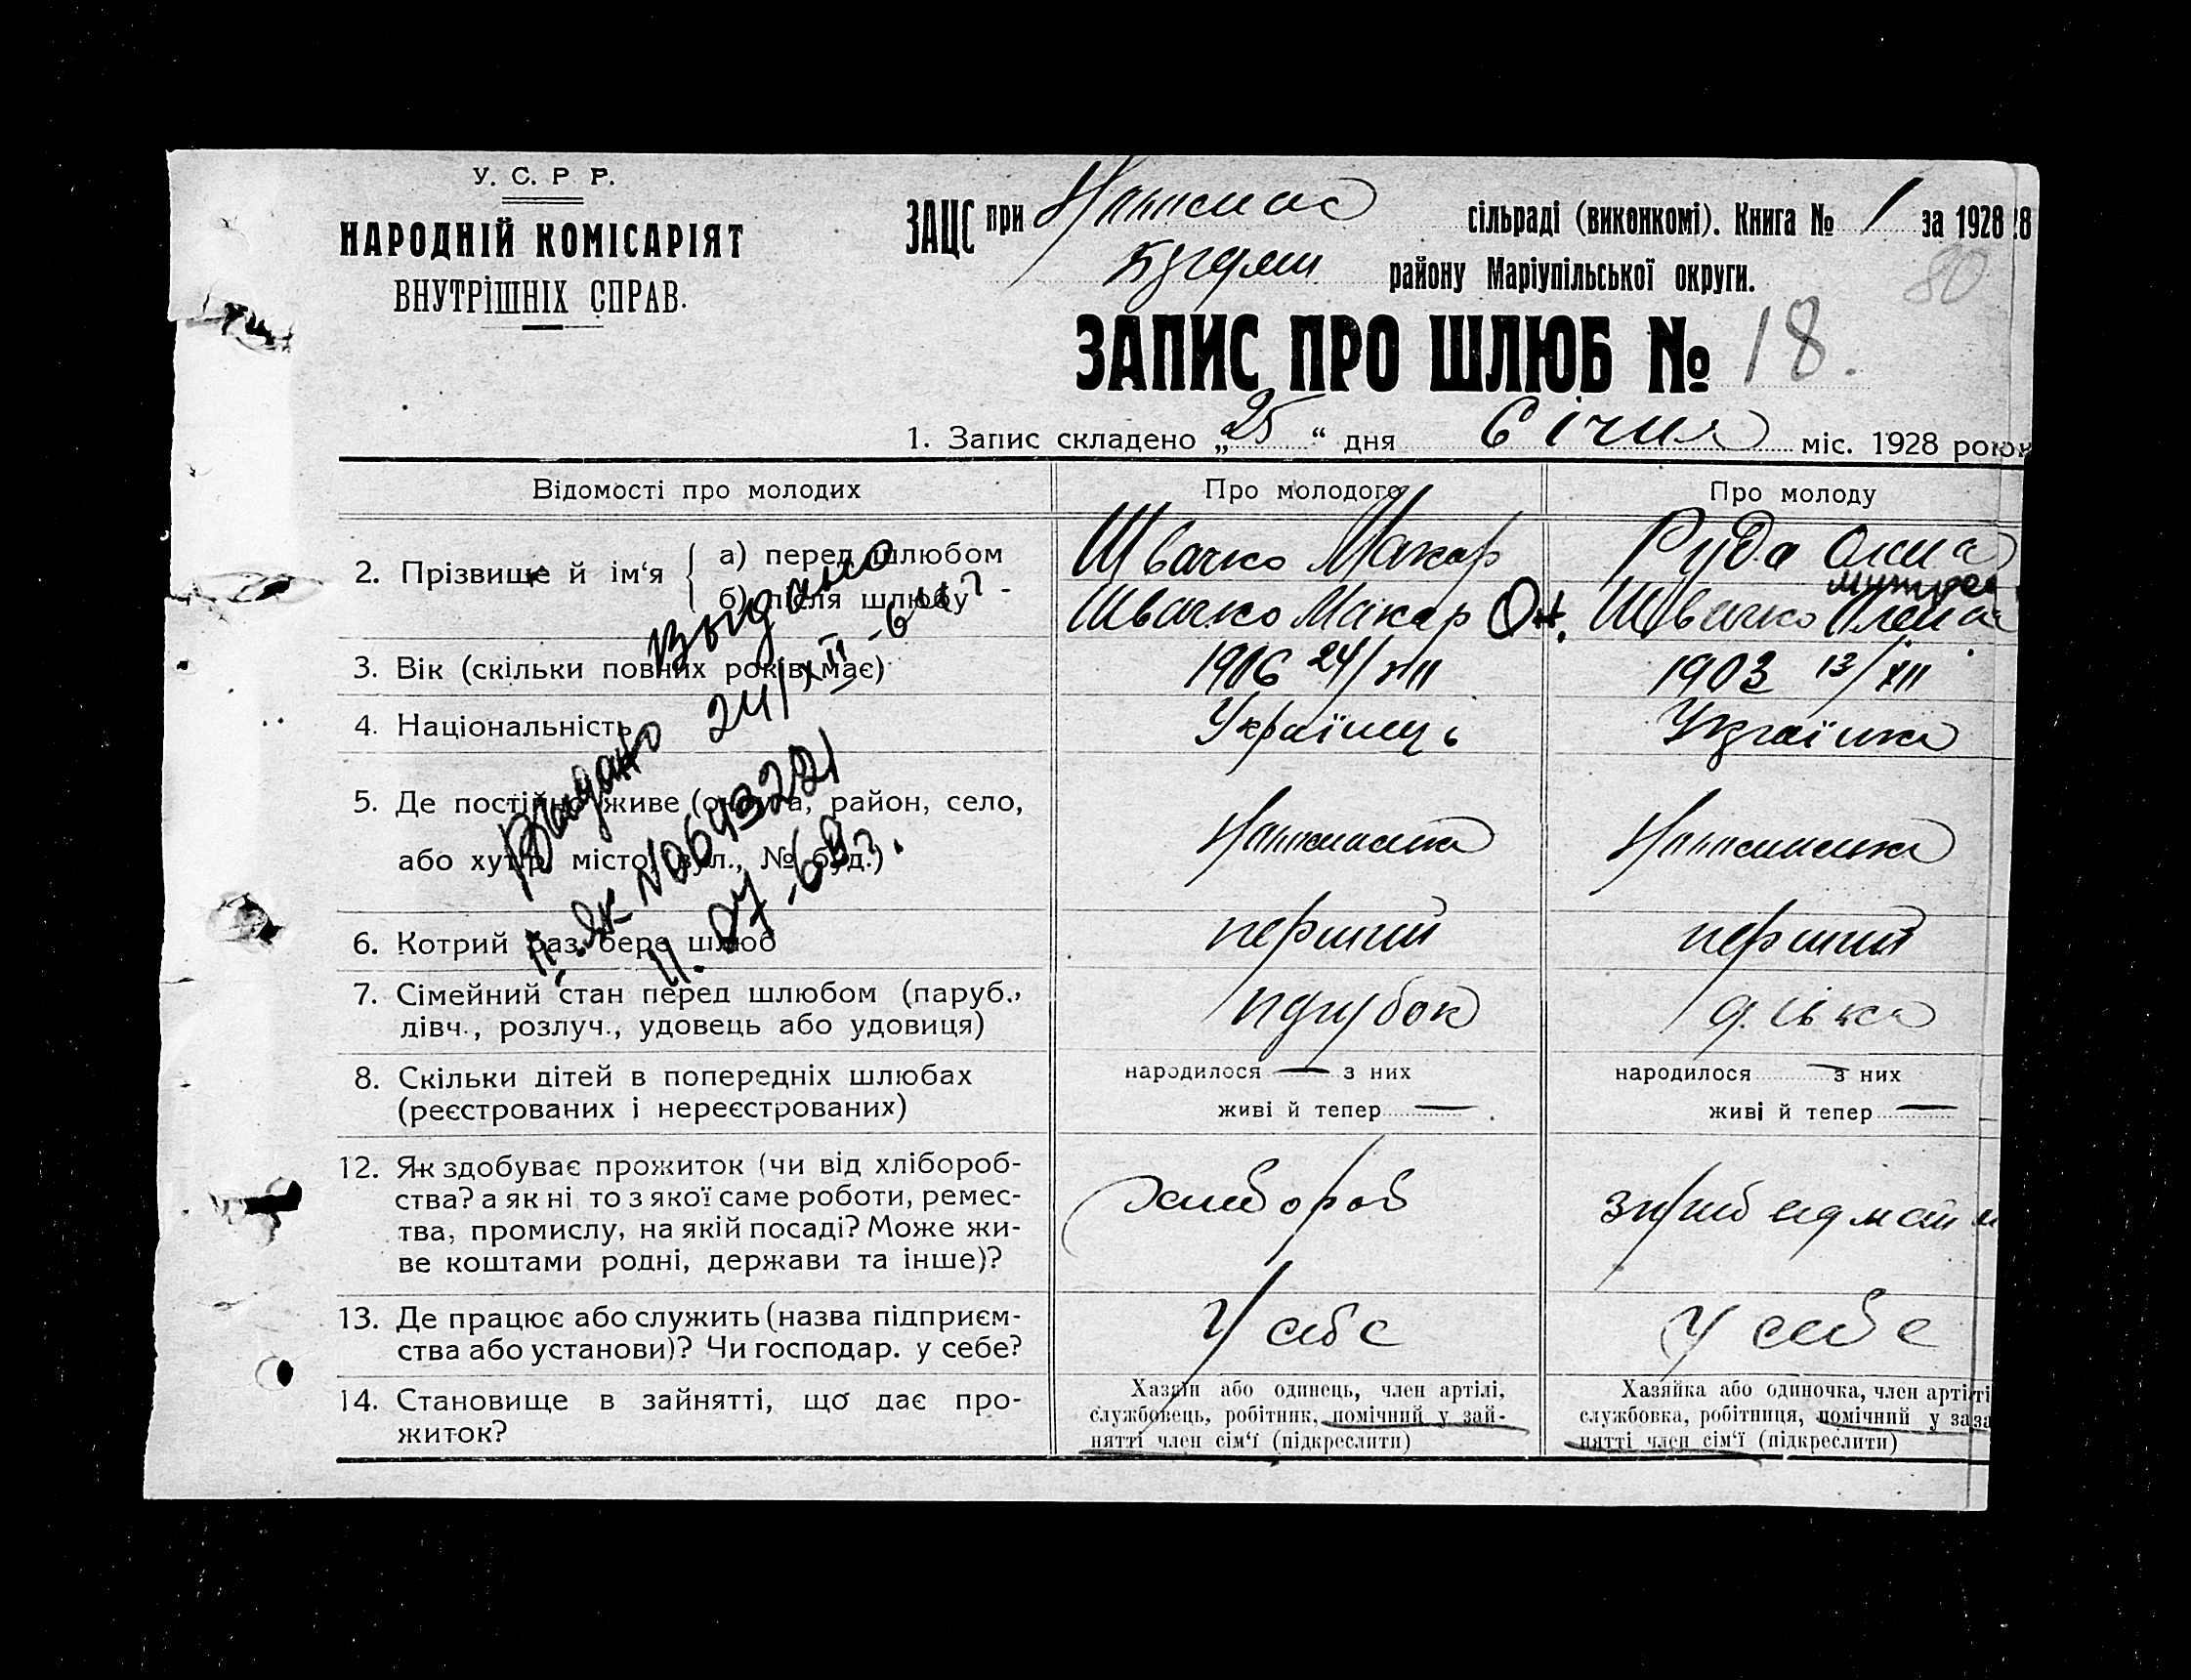 У. С. Р. Р.
НАРОДНІЙ КОМІСАРІЯТ
ВНУТРІШНІХ СПРАВ.
ЗАЦС при сільраді (виконкомі). Книга № 1 за 1928
району Маріупільської округи.
80
ЗАПИС ПРО ШЛЮБ № 18.
1. Запис складено „25“ дня Січня міс. 1928 року
Відомості про молодих
Про молодого
Про молоду
2. Прізвище й ім‘я { а) перед шлюбом
Швачко Макар
Руда Олена
б) після шлюбу
Швачко Макар Он.
Швачко Олена
3. Вік (скільки повних років має)
1906 24/XII
1903 13/XII
4. Національність
Українець
Українка
5. Де постійно живе (округа, район, село,
або хутір, місто, вул., № буд.)
6. Котрий раз бере шлюб
перший
перший
7. Сімейний стан перед шлюбом (паруб.,
дівч., розлуч., удовець або удовиця)
парубок
дівка
8. Скільки дітей в попередніх шлюбах
(реєстрованих і нереєстрованих)
народилося — з них
живі й тепер —
народилося — з них
живі й тепер —
12. Як здобуває прожиток (чи від хлібороб-
ства? а як ні то з якої саме роботи, ремес-
тва, промислу, на якій посаді? Може жи-
ве коштами родні, держави та інше)?
хлібороб
13. Де працює або служить (назва підприєм-
ства або установи)? Чи господар. у себе?
У себе
У себе
14. Становище в зайнятті, що дає про-
житок?
Хазяїн або одинець, член артілі,
службовець, робітник, помічний у зай-
нятті член сім‘ї (підкреслити)
Хазяйка або одиночка, член арті
службовка, робітниця, помічний у за
нятті член сім‘ї (підкреслити)
Выдано
24/XII-64 г
Выдано
II-ЯК №0643221
11.07-69г.